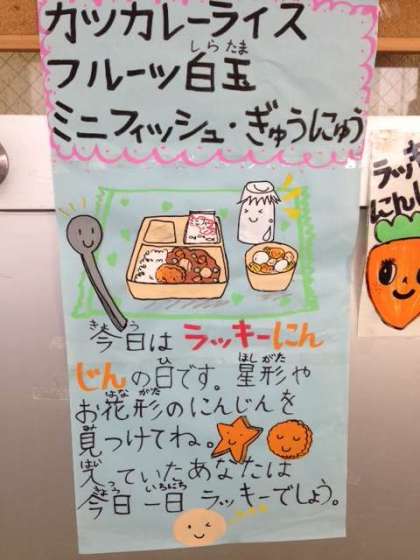 カツカレーライス
しらたま
フルーツ白玉
ミニフィッシュ・ぎゅうにゅう
きょう
今日は ラッキーにん
ひ ほしがた
じんの日です。星形や
はながた
お花形のにんじんを
見つけてね。
っていたあなたは
きょう いちにち
今日一日 ラッキーでしょう。
ラッキ
にん